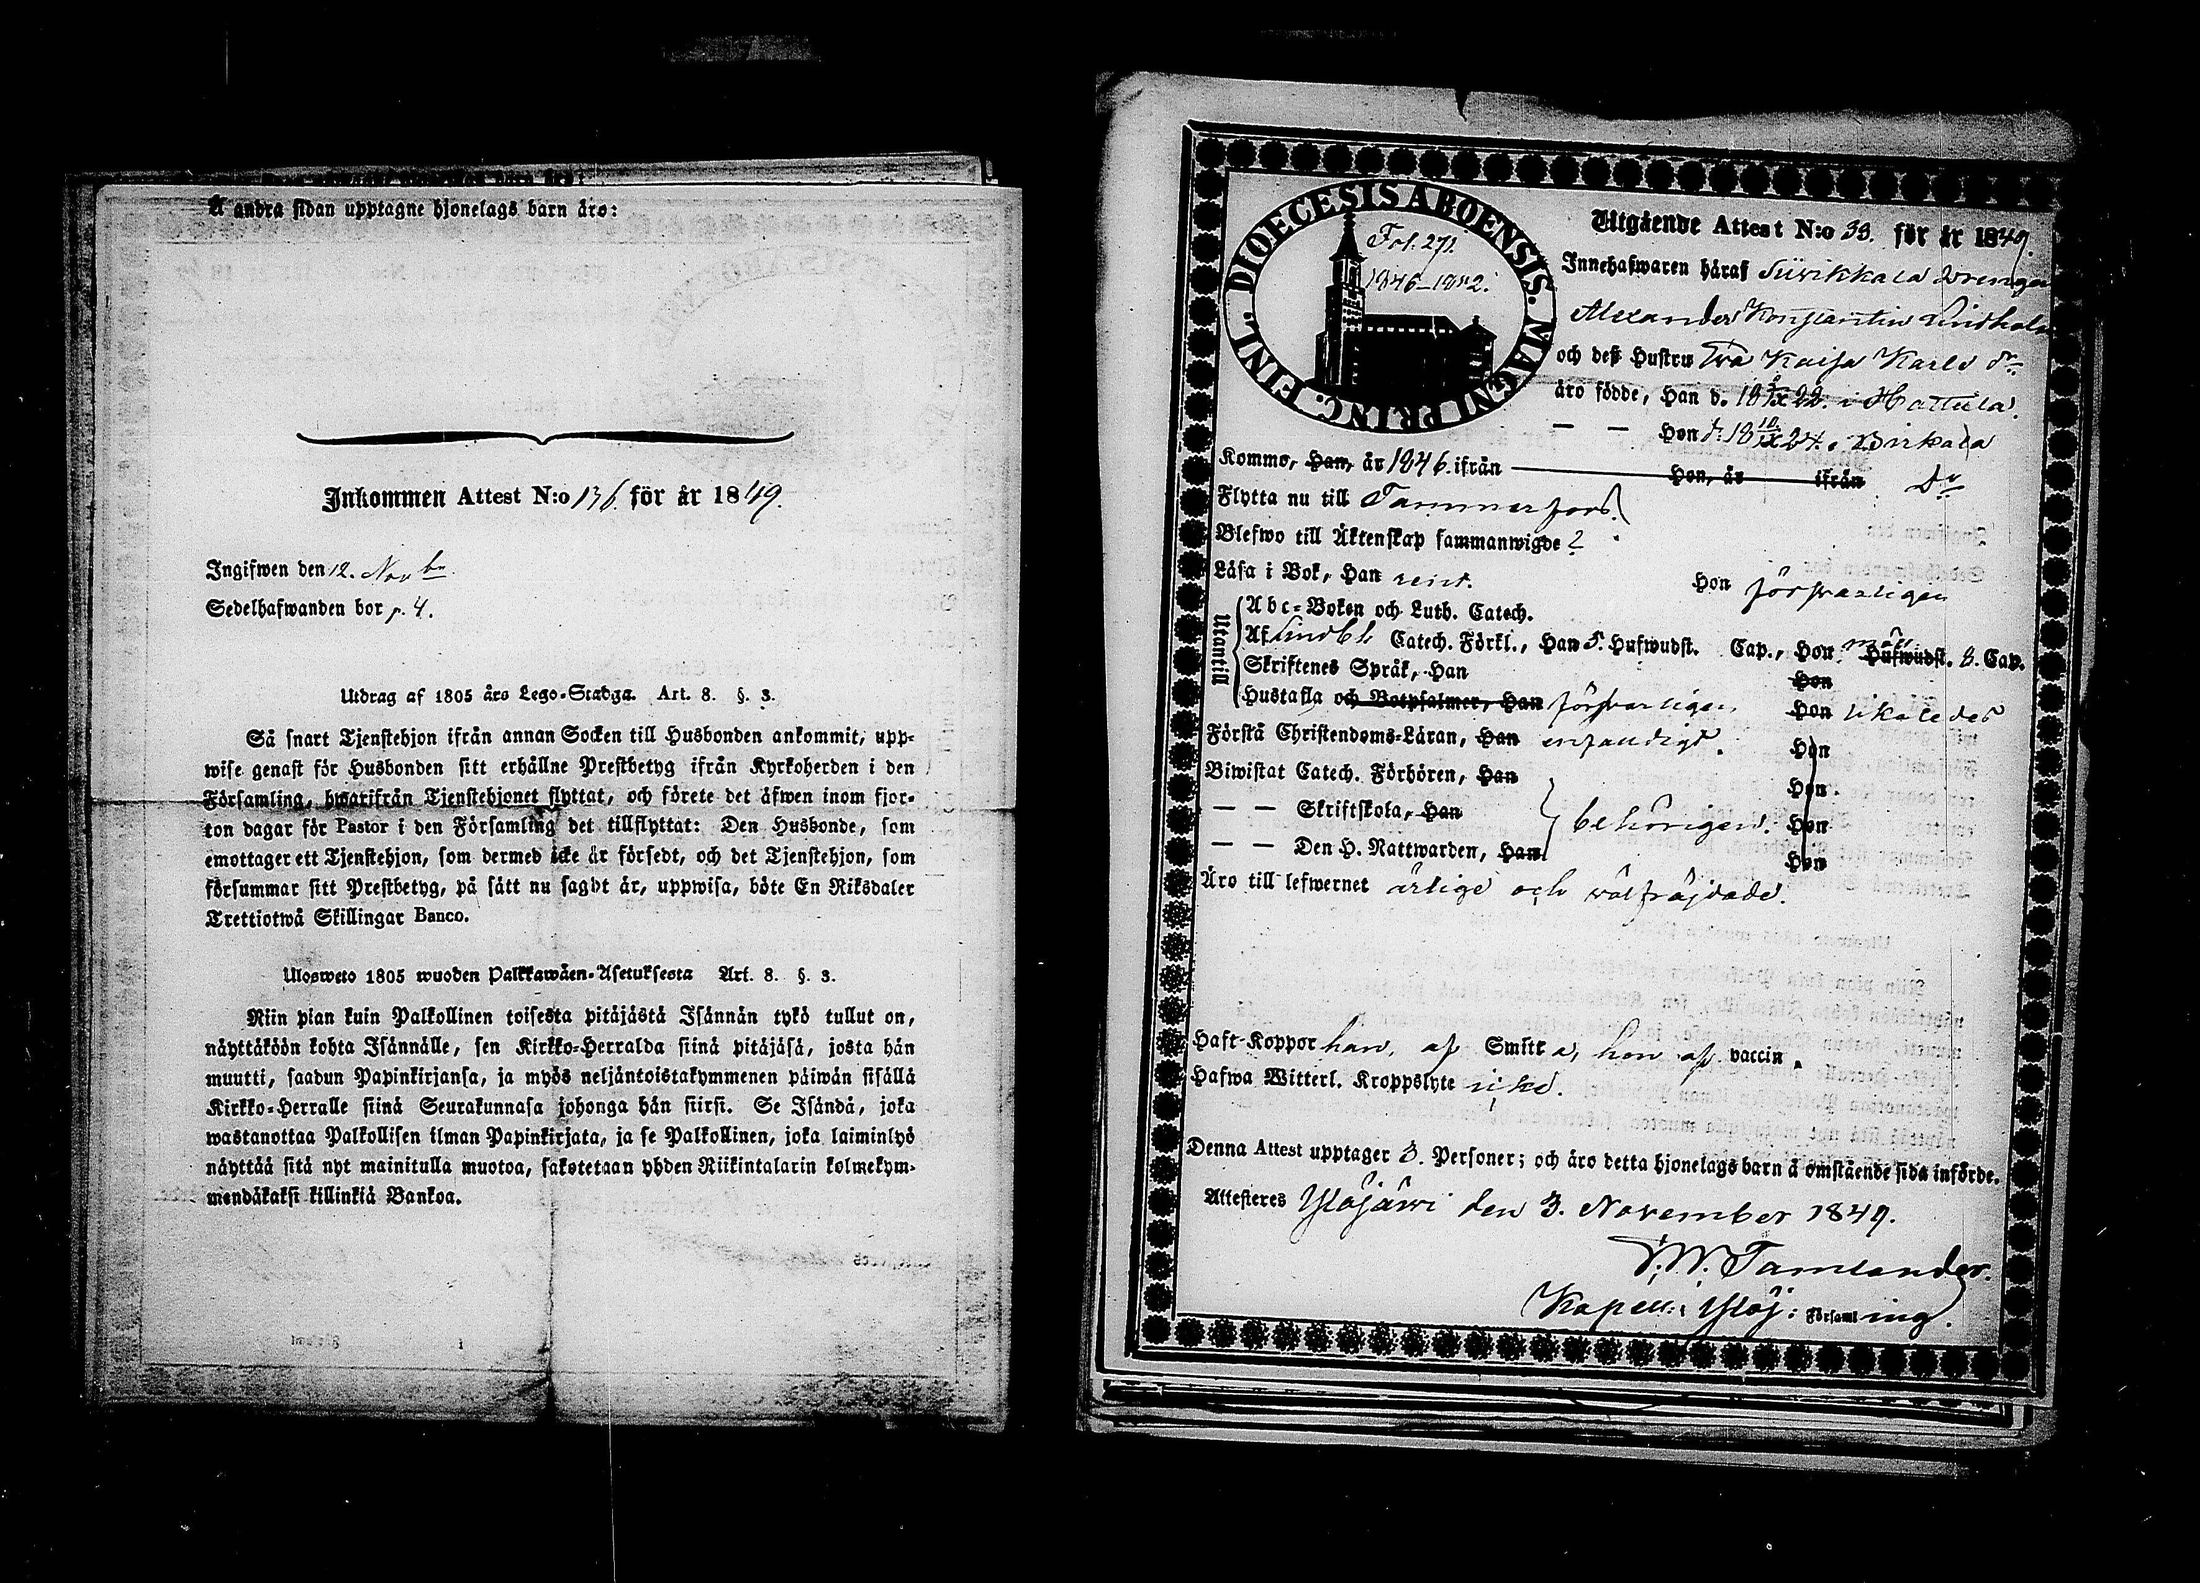 Å andra sidan upptagne hjonelags barn äro:
Inkommen Attest N:o 136. för år 1849.
Ingifwen den 12. Novbr
Sedelhafwanden bor p. 4.
Utdrag af 1805 års Lego-Stadga. Art. 8. §. 3.
Så snart Tjenstehjon ifrån annan Socken till Husbonden ankommit, upp-
wise genast för Husbonden sitt erhållne Prestbetyg ifrån Kyrkoherden i den
Församling, hwarifrån Tjenstehjonet flyttat, och förete det äfwen inom fjor-
ton dagar för Pastor i den Församling det tillflyttat: Den Husbonde, som
emottager ett Tjenstehjon, som dermed icke är försedt, och det Tjenstehjon, som
försummar sitt Prestbetyg, på sätt nu sagdt är, uppwisa, böte En Riksdaler
Trettiotwå Skillingar Banco.
Ulosweto 1805 wuoden Palkkawäen-Asetuksesta Art. 8. §. 3.
Niin pian kuin Palkollinen toisesta pitäjästä Isännän tykö tullut on,
näyttäköön kohta Isännälle, sen Kirkko-Herralda siinä pitäjäsä, josta hän
muutti, saadun Papinkirjansa, ja myös neljäntoistakymmenen päiwän sisällä
Kirkko-Herralle siinä Seurakunnasa johonga hän siirsi. Se Isändä, joka
wastanottaa Palkollisen ilman Papinkirjata, ja se Palkollinen, joka laiminlyö
näyttää sitä nyt mainitulla muotoa, sakotetaan yhden Riikintalarin kolmekym-
mendäkaksi killinkiä Bankoa.
DIOECESIS ABOENSIS. MAGNI PRINC. FINL.
Fol. 271.
1846–1852.
Utgående Attest N:o 33. för år 1849.
Innehafwaren häraf Siivikkala drenge
Alexander Konstantin Lindholm
och deß Hustru Eva Kaisa Karls dr
äro födde, Han d. 18 /IX 22. i Hattula.
— — Hon d. 18 10/IX 24. i Birkala
Kommo, Han, år 1846. ifrån — Hon, år ifrån Do
Flytta nu till Tammerfors.
Blefwo till Äktenskap sammanwigde ?
Läsa i Bok, Han rent. Hon förswarligen
Utantill
Abc-Boken och Luth. Catech.
Af Lindbl. Catech. Förkl., Han 5. Hufwudst. Cap., Hon Hufwudst. 8. Cap.
Skriftenes Språk, Han Hon
Hustafla och Botpsalmer, Han förswarligen, Hon likaledes
Förstå Christendoms-Läran, Han enfaldigt. Hon
Biwistat Catech. Förhören, Han Hon
— — Skriftskola, Han behörigen. Hon
— — Den H. Nattwarden, Han Hon
Äro till lefwernet ärlige och wälfräjdade.
Haft Koppor han, af Smitta, hon af vaccin.
Hafwa Witterl. Kroppslyte icke.
Denna Attest upptager 3. Personer; och äro detta hjonelags barn å omstående sida införde.
Attesteres Ylöjärwi den 3. November 1849.
Tamlander.
Kapell: i Ylöj: Församling.